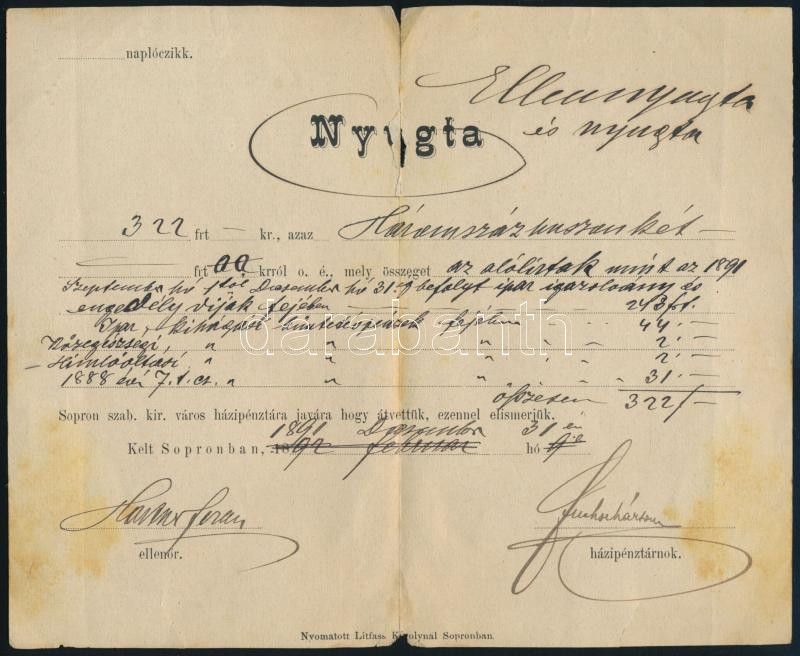 naplóczikk.
Ellennyugta
és nyugta
Nyugta
322 frt — kr., azaz Háromszázhuszonkét —
frt 00 krról o. é., mely összeget az alólirtak mint az 1891
Szeptember hó 1től Dezember hó 31-ig befolyt ipar igazolvány és
engedély dijak fejében 243 frt.
Ipar, kihágási büntetéspénzek fejében 44.—
Közegészségi, " " " " " 2.—
— Himlőoltási, " " " " " 2.—
1888 évi 7. t. cz. " " " " 31.—
összesen 322/—
Sopron szab. kir. város házipénztára javára hogy átvettük, ezennel elismerjük.
1891 Dezember 31 én
Kelt Sopronban, 1892 Februar hó
ellenőr.
házipénztárnok.
Nyomatott Litfass Károlynál Sopronban.
darabanth